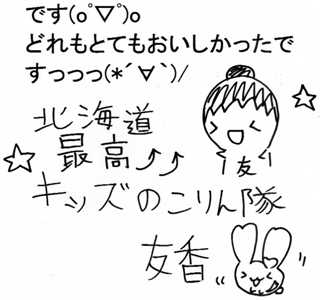 です(o゚▽゚)o
どれもとてもおいしかったで
すっっっ(*´∀`)/
北海道
最高⤴⤴
友
キッズのこりん隊
友香